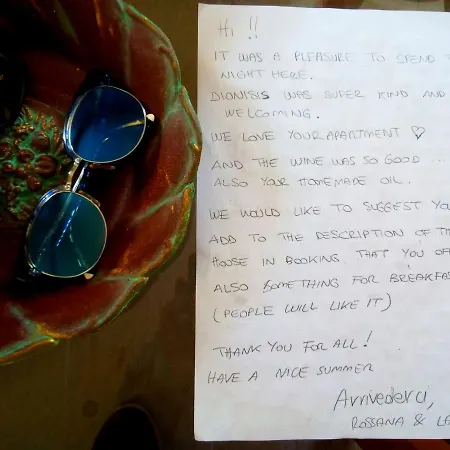 HI !!
IT WAS A PLEASURE TO SPEND
NIGHT HERE.
DIONISIS WAS SUPER KIND AND
WELCOMING.
WE LOVE YOUR APARTMENT ♡
AND THE WINE WAS SO GOOD ..
ALSO YOUR HOMEMADE OIL.
WE WOULD LIKE TO SUGGEST YOU
ADD TO THE DESCRIPTION OF
HOUSE IN BOOKING. THAT YOU
ALSO SOMETHING FOR BREAKFAS
(PEOPLE WILL LIKE IT)
THANK YOU FOR ALL!
HAVE A NICE SUMMER
Arrivederci,
ROSSANA &